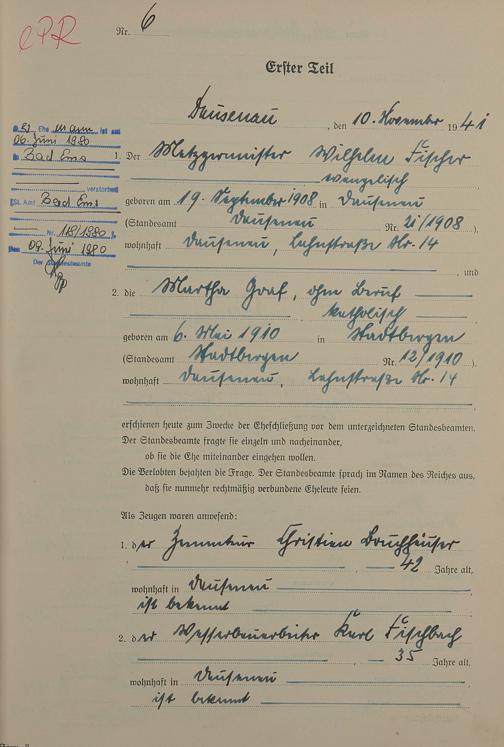 CPR
Nr. 6
Erster Teil
Dausenau, den 10. November 1941
D. Ehemann ist am
06. Juni 1980
in Bad Ems
verstorben
(St. Amt Bad Ems
Nr. 118/1980).
Den 09. Juni 1980
Der Standesbeamte
1. Der Metzgermeister Wilhelm Fischer
evangelisch
geboren am 19. September 1908 in Dausenau
(Standesamt Dausenau Nr. 21/1908),
wohnhaft Dausenau, Lahnstraße Nr. 14
, und
2. die Martha Graf, ohne Beruf
katholisch
geboren am 6. Mai 1910 in Stadtbergen
(Standesamt Stadtbergen Nr. 12/1910),
wohnhaft Dausenau, Lahnstraße Nr. 14
erschienen heute zum Zwecke der Eheschließung vor dem unterzeichneten Standesbeamten.
Der Standesbeamte fragte sie einzeln und nacheinander,
ob sie die Ehe miteinander eingehen wollen.
Die Verlobten bejahten die Frage. Der Standesbeamte sprach im Namen des Reiches aus,
daß sie nunmehr rechtmäßig verbundene Eheleute seien.
Als Zeugen waren anwesend:
1. der Christian Bruchhäuser
42 Jahre alt,
wohnhaft in Dausenau
ist bekannt
2. der Karl Fischbach
35 Jahre alt,
wohnhaft in Dausenau
ist bekannt